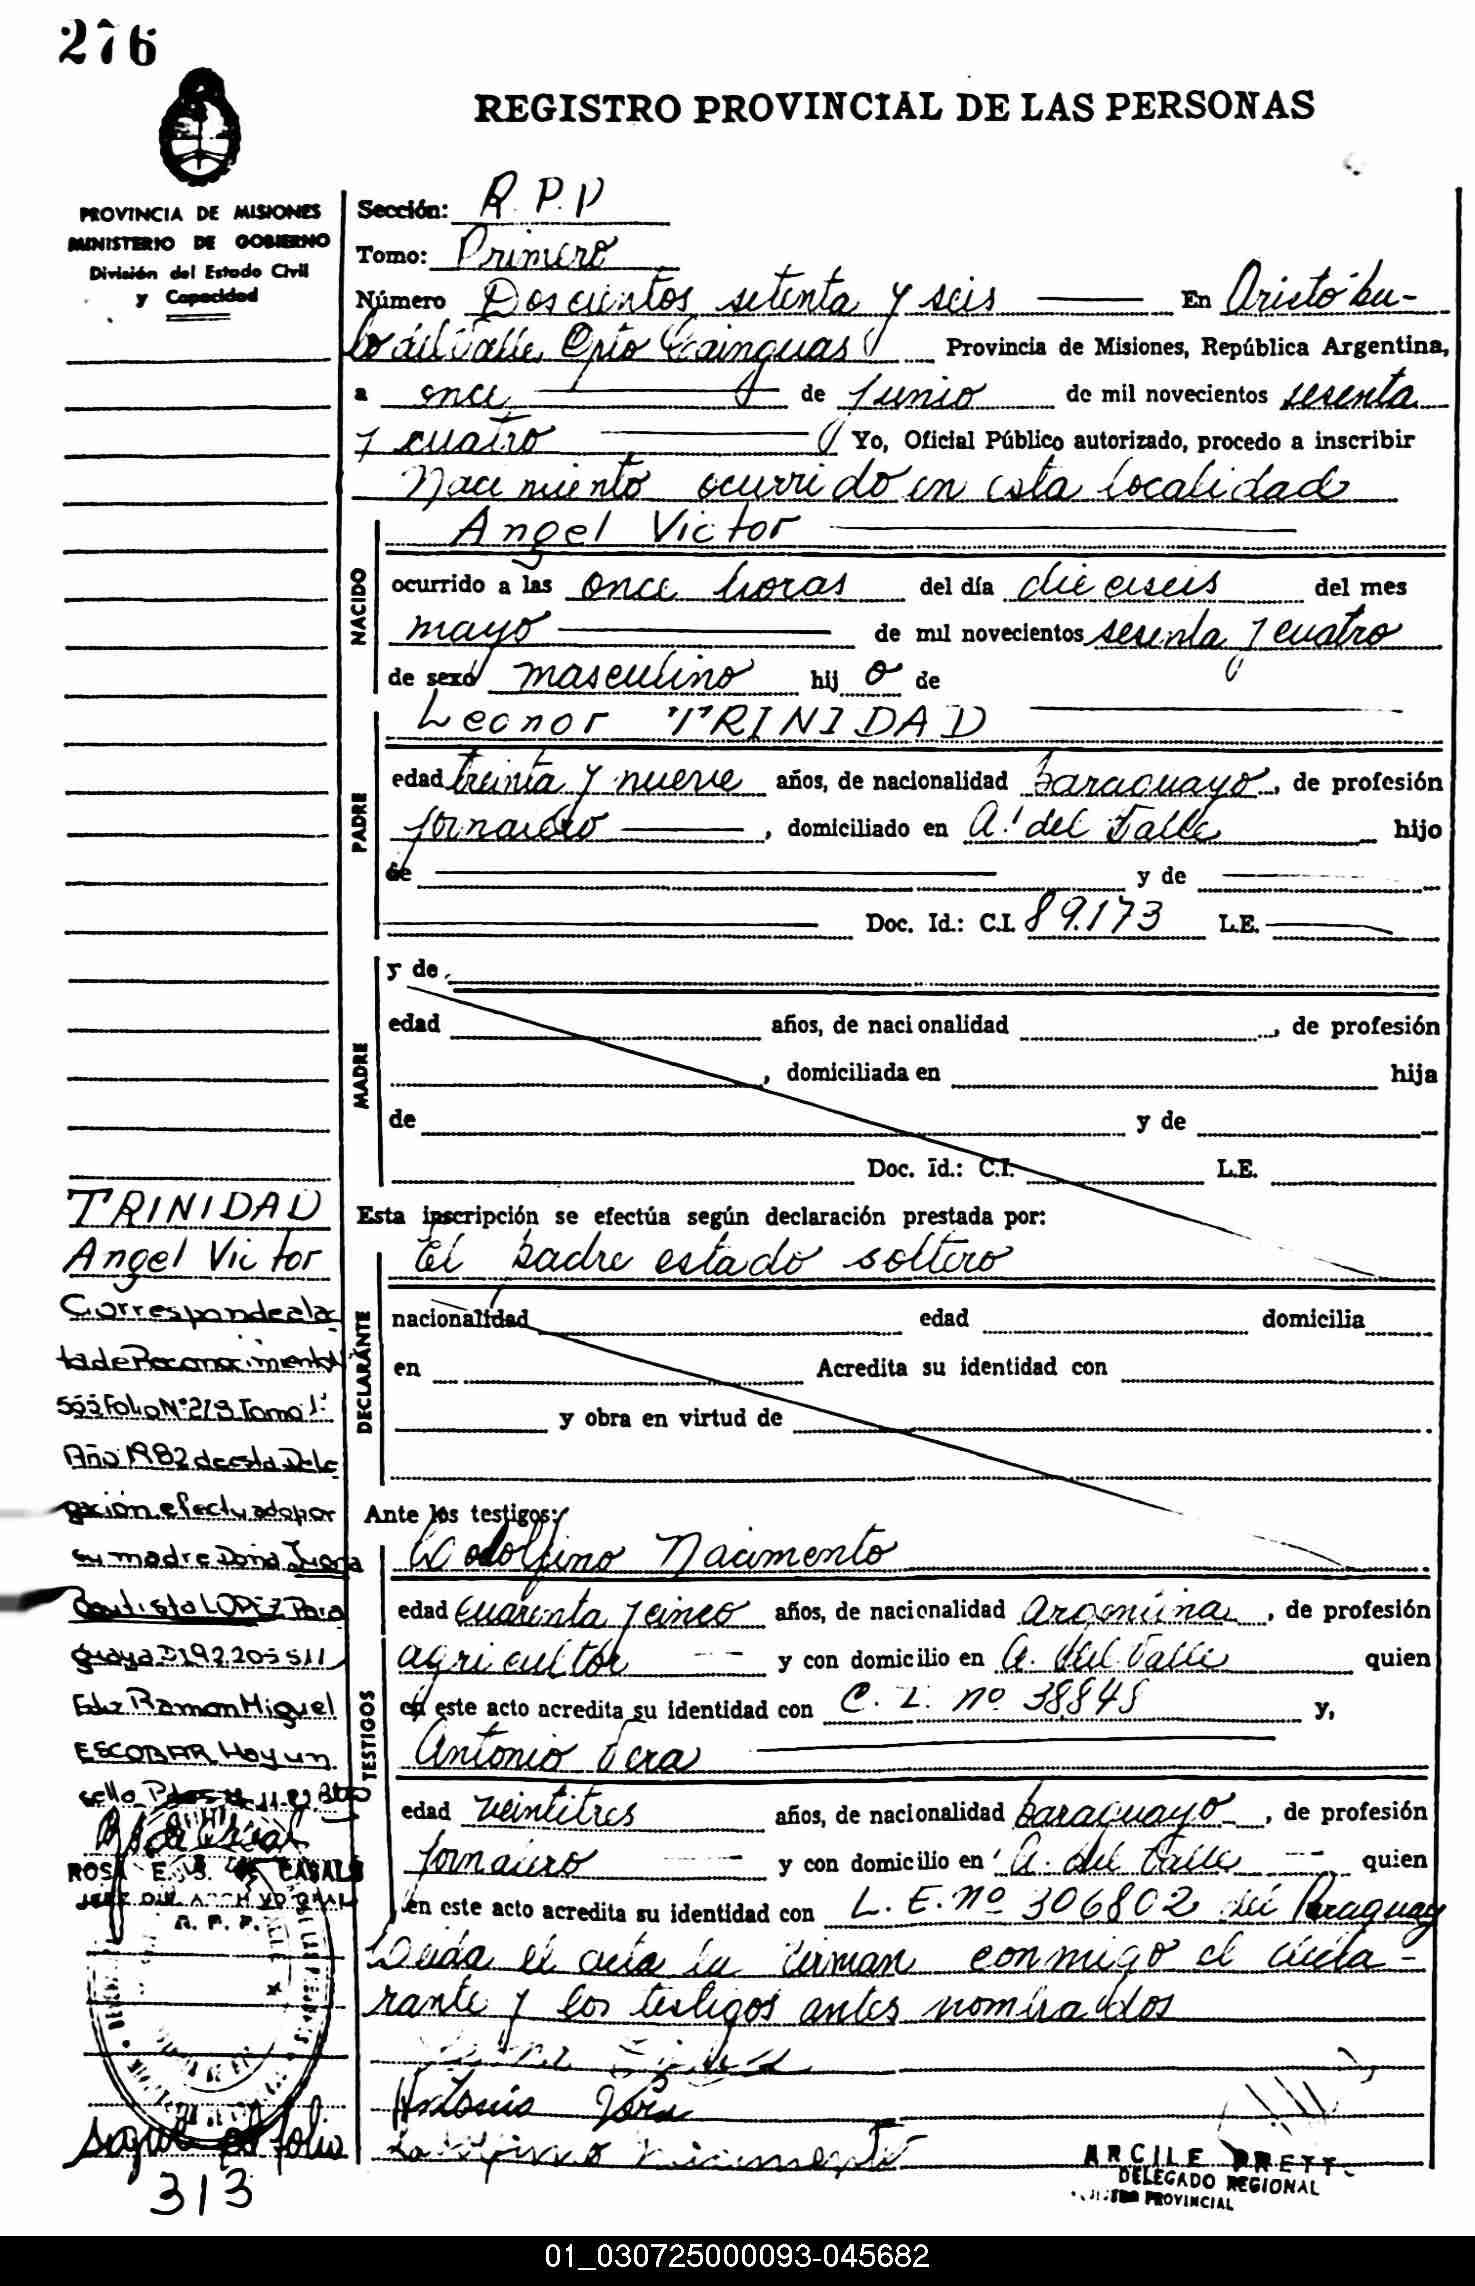 276
REGISTRO PROVINCIAL DE LAS PERSONAS
PROVINCIA DE MISIONES
MINISTERIO DE GOBIERNO
División del Estado Civil
y Capacidad
Sección: R.P.P
Tomo: Primero
Número Doscientos setenta y seis En Aristóbu-
lo del Valle Dpto Cainguas Provincia de Misiones, República Argentina,
a once de junio de mil novecientos sesenta
y cuatro Yo, Oficial Público autorizado, procedo a inscribir
Nacimiento ocurrido en esta localidad
NACIDO
Angel Victor
ocurrido a las once horas del día dieciseis del mes
mayo de mil novecientos sesenta y cuatro
de sexo masculino hij o de
PADRE
Leonor TRINIDAD
edad treinta y nueve años, de nacionalidad paraguayo, de profesión
jornalero, domiciliado en A. del Valle hijo
de y de
Doc. Id.: C.I. 89.173 L.E.
MADRE
y de
edad años, de nacionalidad , de profesión
, domiciliada en hija
de y de
Doc. Id.: C.I. L.E.
Esta inscripción se efectúa según declaración prestada por:
DECLARANTE
El padre estado soltero
nacionalidad edad domicilia
en Acredita su identidad con
y obra en virtud de
Ante los testigos:
TESTIGOS
Nacimento
edad cuarenta y cinco años, de nacionalidad argentina, de profesión
agricultor y con domicilio en A. del Valle quien
en este acto acredita su identidad con C. I. nº 38848 y,
Antonio Vera
edad veintitres años, de nacionalidad paraguayo, de profesión
jornalero y con domicilio en A. del Valle quien
en este acto acredita su identidad con L. E. nº 306802 del Paraguay
Leida el acta la firman conmigo el decla-
rante y los testigos antes nombrados
Antonio Vera
ARCILE
DELEGADO REGIONAL
PROVINCIAL
TRINIDAD
Angel Victor
Corresponde al ac
ta de Reconocimiento
555 Folio Nº 219 Tomo 1º
Año 1982 de esta Dele
gación efectuado por
su madre Doña Juana
Bautista LOPEZ Para
guaya DI 92.205.511
Fdo Ramon Miguel
ESCOBAR Hay un
sello
ROSA E. CASALS
R. P. P.
sigue el folio
313
01_030725000093-045682